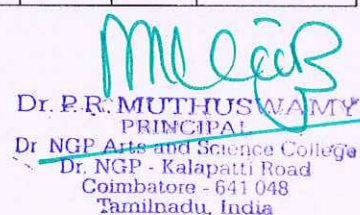 Dr. P.R. MUTHUSWAMY
PRINCIPAL
Dr NGP Arts and Science College
Dr. NGP - Kalapatti Road
Coimbatore - 641 048
Tamilnadu, India